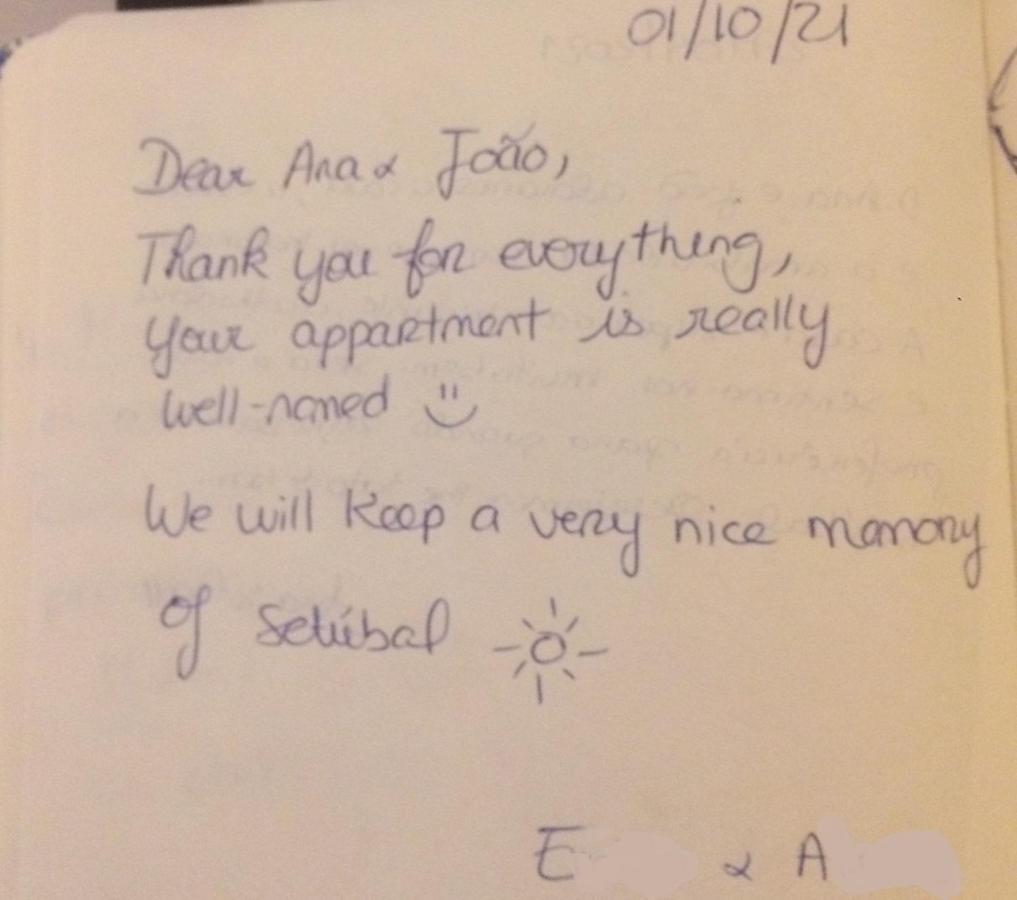 01/10/21
Dear Ana & João,
Thank you for everything,
Your appartment is really
well-named
We will keep a very nice memory
of Setúbal
E & A